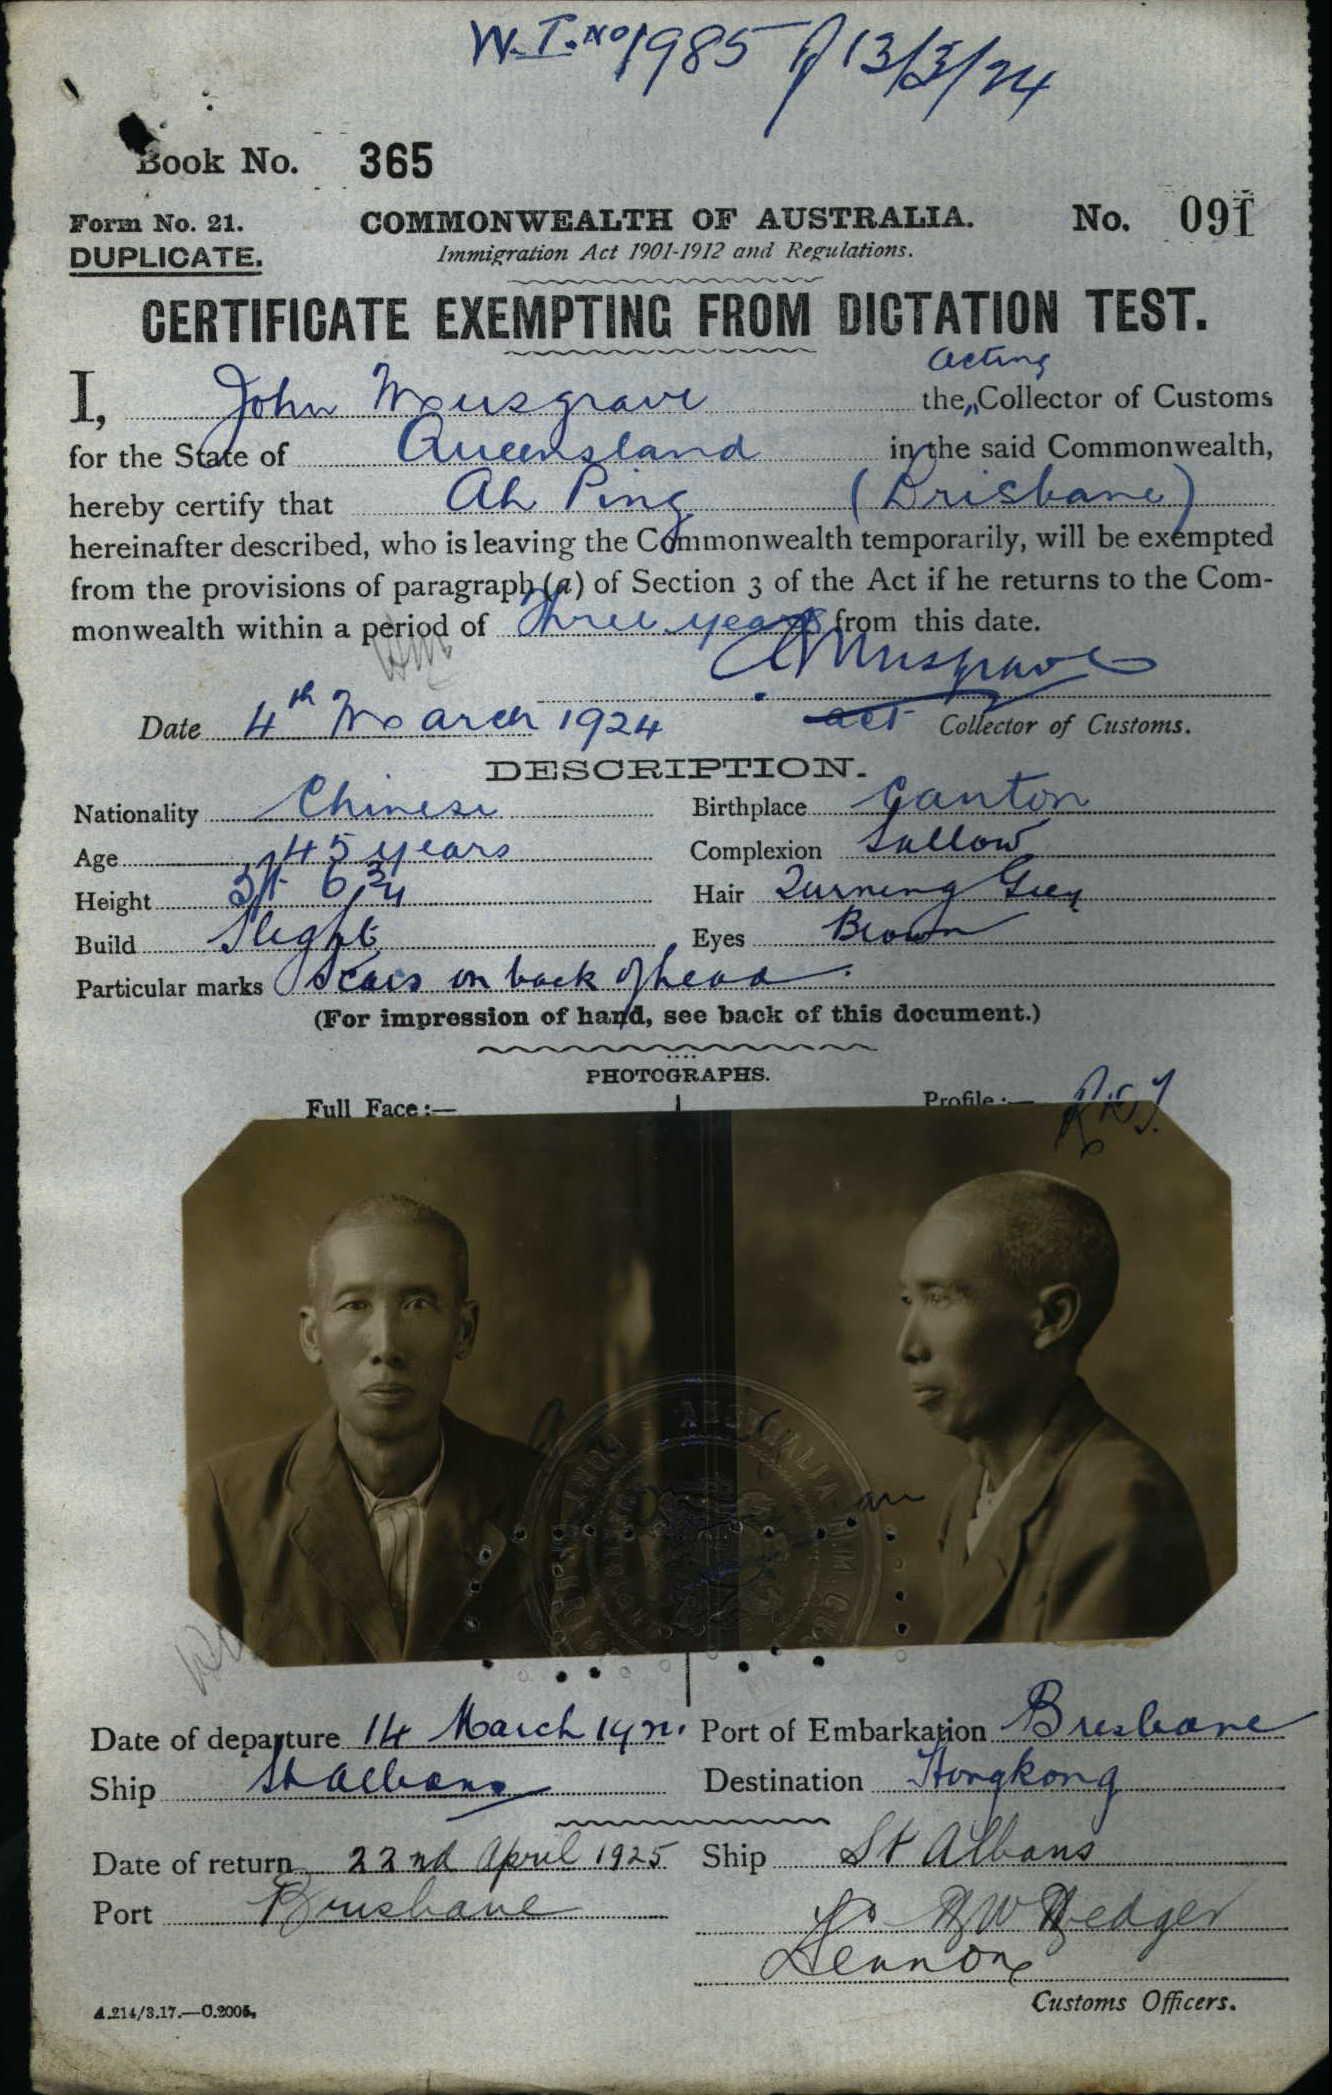 W.T. No 1985 13/3/24
Book No. 365
Form No. 21. COMMONWEALTH OF AUSTRALIA. No. 091
DUPLICATE. Immigration Act 1901-1912 and Regulations.
CERTIFICATE EXEMPTING FROM DICTATION TEST.
acting
I, John Musgrave the Collector of Customs
for the State of Queensland in the said Commonwealth,
hereby certify that Ah Ping (Brisbane)
hereinafter described, who is leaving the Commonwealth temporarily, will be exempted
from the provisions of paragraph (a) of Section 3 of the Act if he returns to the Com-
monwealth within a period of Three years from this date.
Musgrave
Date 4th March 1924 act Collector of Customs.
DESCRIPTION.
Nationality Chinese Birthplace Canton
Age 45 years Complexion Sallow
Height 5ft 6 3/4 Hair Turning Grey
Build Slight Eyes Brown
Particular marks Scars on back of head.
(For impression of hand, see back of this document.)
PHOTOGRAPHS.
Full Face:— Profile:—
Date of departure 14 March 1924. Port of Embarkation Brisbane
Ship St Albans Destination Hongkong
Date of return 22nd April 1925 Ship St Albans
Port Brisbane
Hedger
Lennon
Customs Officers.
A.214/3.17.—C.2005.